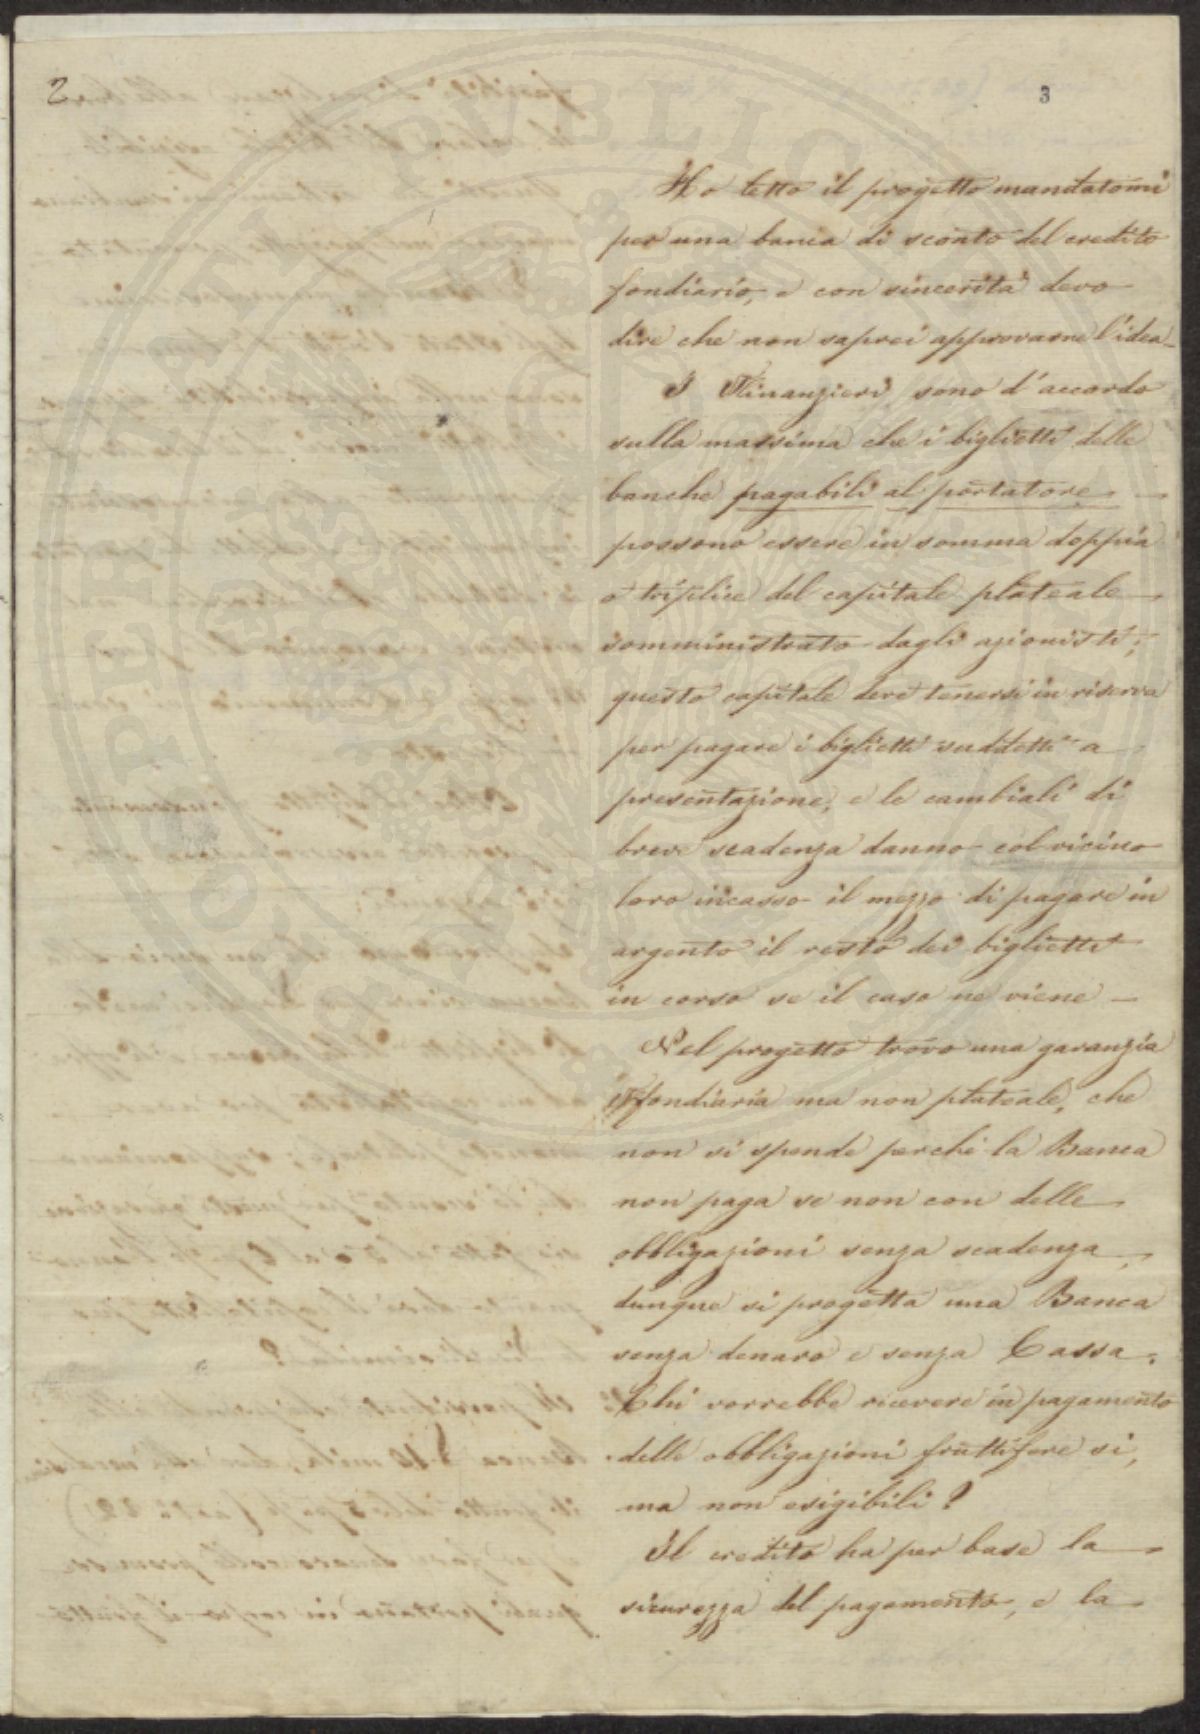 2
3
Ho letto il progetto mandatomi
per una banca di sconto del credito
fondiario, e con sincerità devo
dire che non saprei approvarne l'idea_
I Finanzieri sono d'accordo
sulla massima che i biglietti delle
banche pagabili al portatore _
possono essere in somma doppia
o triplice del capitale plateale
somministrato dagli azionisti;
questo capitale deve tenersi in riserva
per pagare i biglietti suddetti a
presentazione, e le cambiali di
breve scadenza danno col vicino
loro incasso il mezzo di pagare in
argento il resto dei biglietti
in corso se il caso ne viene _
Nel progetto trovo una garanzia
fondiaria ma non plateale, che
non si spende perché la Banca
non paga se non con delle
obbligazioni senza scadenza,
dunque si progetta una Banca
senza denaro e senza Cassa.
Chi vorrebbe ricevere in pagamento
delle obbligazioni fruttifere si,
ma non esigibili?
Il credito ha per base la
sicurezza del pagamento, e la